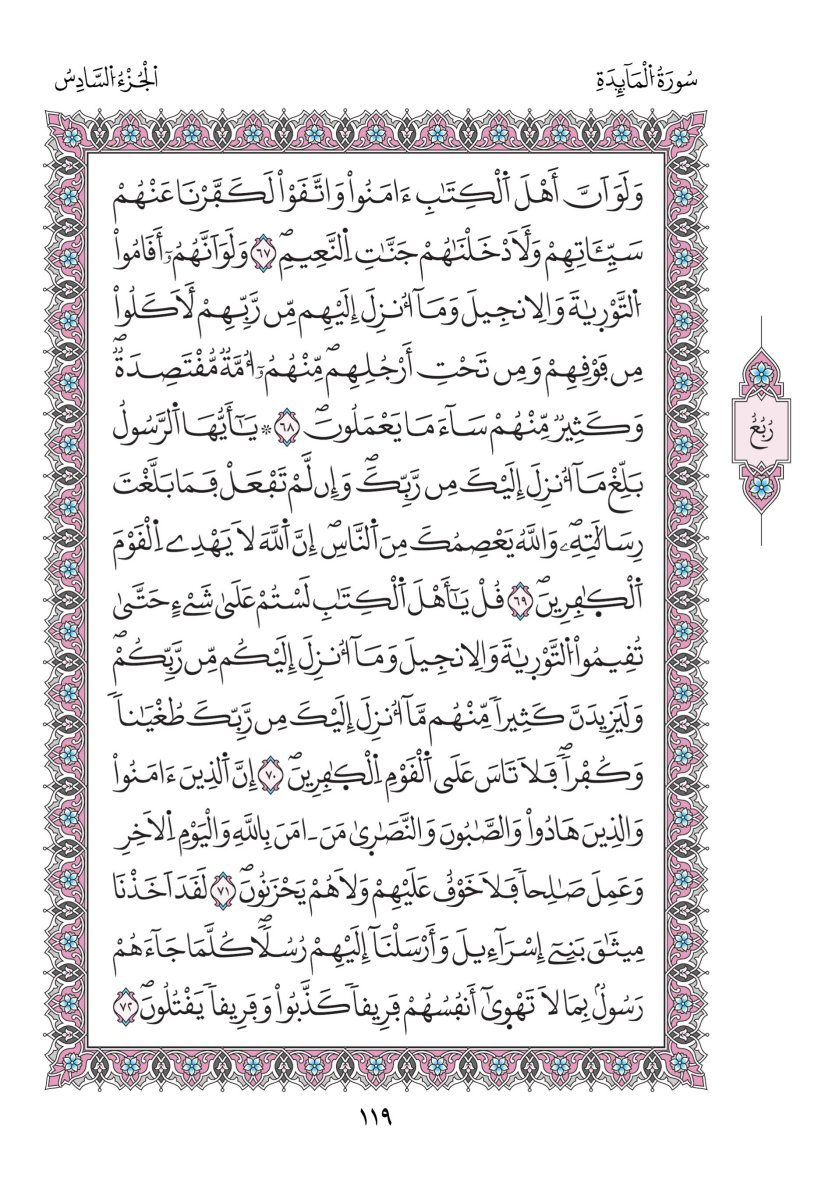 سُورَةُ اُ۬لْمَآئِدَةِ
اَ۬لْجُزْءُ اُ۬لسَّادِسُ
وَلَوَ اَنَّ أَهْلَ اَ۬لْكِتَٰبِ ءَامَنُواْ وَاتَّقَوْاْ لَكَفَّرْنَا عَنْهُمْ
سَيِّـَٔاتِهِمْ وَلَأَدْخَلْنَٰهُمْ جَنَّٰتِ اِ۬لنَّعِيمِۖ ٦٧ وَلَوَ اَنَّهُمُۥٓ أَقَامُواْ
اُ۬لتَّوْرِيٰةَ وَالِانجِيلَ وَمَآ أُنزِلَ إِلَيْهِم مِّن رَّبِّهِمْ لَأَكَلُواْ
مِن فَوْقِهِمْ وَمِن تَحْتِ أَرْجُلِهِمۖ مِّنْهُمُۥٓ أُمَّةٞ مُّقْتَصِدَةٞۖ
وَكَثِيرٞ مِّنْهُمْ سَآءَ مَا يَعْمَلُونَۖ ٦٨ * يَٰٓأَيُّهَا اَ۬لرَّسُولُ
بَلِّغْ مَآ أُنزِلَ إِلَيْكَ مِن رَّبِّكَۖ وَإِن لَّمْ تَفْعَلْ فَمَا بَلَّغْتَ
رِسَالَٰتِهِۦۖ وَاللَّهُ يَعْصِمُكَ مِنَ اَ۬لنَّاسِۖ إِنَّ اَ۬للَّهَ لَا يَهْدِے اِ۬لْقَوْمَ
اَ۬لْكٰ۪فِرِينَۖ ٦٩ قُلْ يَٰٓأَهْلَ اَ۬لْكِتَٰبِ لَسْتُمْ عَلَىٰ شَےْءٍ حَتَّىٰ
تُقِيمُواْ اُ۬لتَّوْرِيٰةَ وَالِانجِيلَ وَمَآ أُنزِلَ إِلَيْكُم مِّن رَّبِّكُمْۖ
وَلَيَزِيدَنَّ كَثِيراٗ مِّنْهُم مَّآ أُنزِلَ إِلَيْكَ مِن رَّبِّكَ طُغْيَٰناٗ
وَكُفْراٗۖ فَلَا تَاسَ عَلَى اَ۬لْقَوْمِ اِ۬لْكٰ۪فِرِينَۖ ٧٠ إِنَّ اَ۬لذِينَ ءَامَنُواْ
وَالذِينَ هَادُواْ وَالصَّٰبُونَ وَالنَّصَٰرٜيٰ مَنَ اٰمَنَ بِاللَّهِ وَالْيَوْمِ اِ۬لَاخِرِ
وَعَمِلَ صَٰلِحاٗ فَلَا خَوْفٌ عَلَيْهِمْ وَلَا هُمْ يَحْزَنُونَۖ ٧١ لَقَدَ اَخَذْنَا
مِيثَٰقَ بَنِےٓ إِسْرَآءِيلَ وَأَرْسَلْنَآ إِلَيْهِمْ رُسُلاٗۖ كُلَّمَا جَآءَهُمْ
رَسُولُۢ بِمَا لَا تَهْوٜىٰٓ أَنفُسُهُمْ فَرِيقاٗ كَذَّبُواْ وَفَرِيقاٗ يَقْتُلُونَۖ ٧٢
رُبُعُ
١١٩